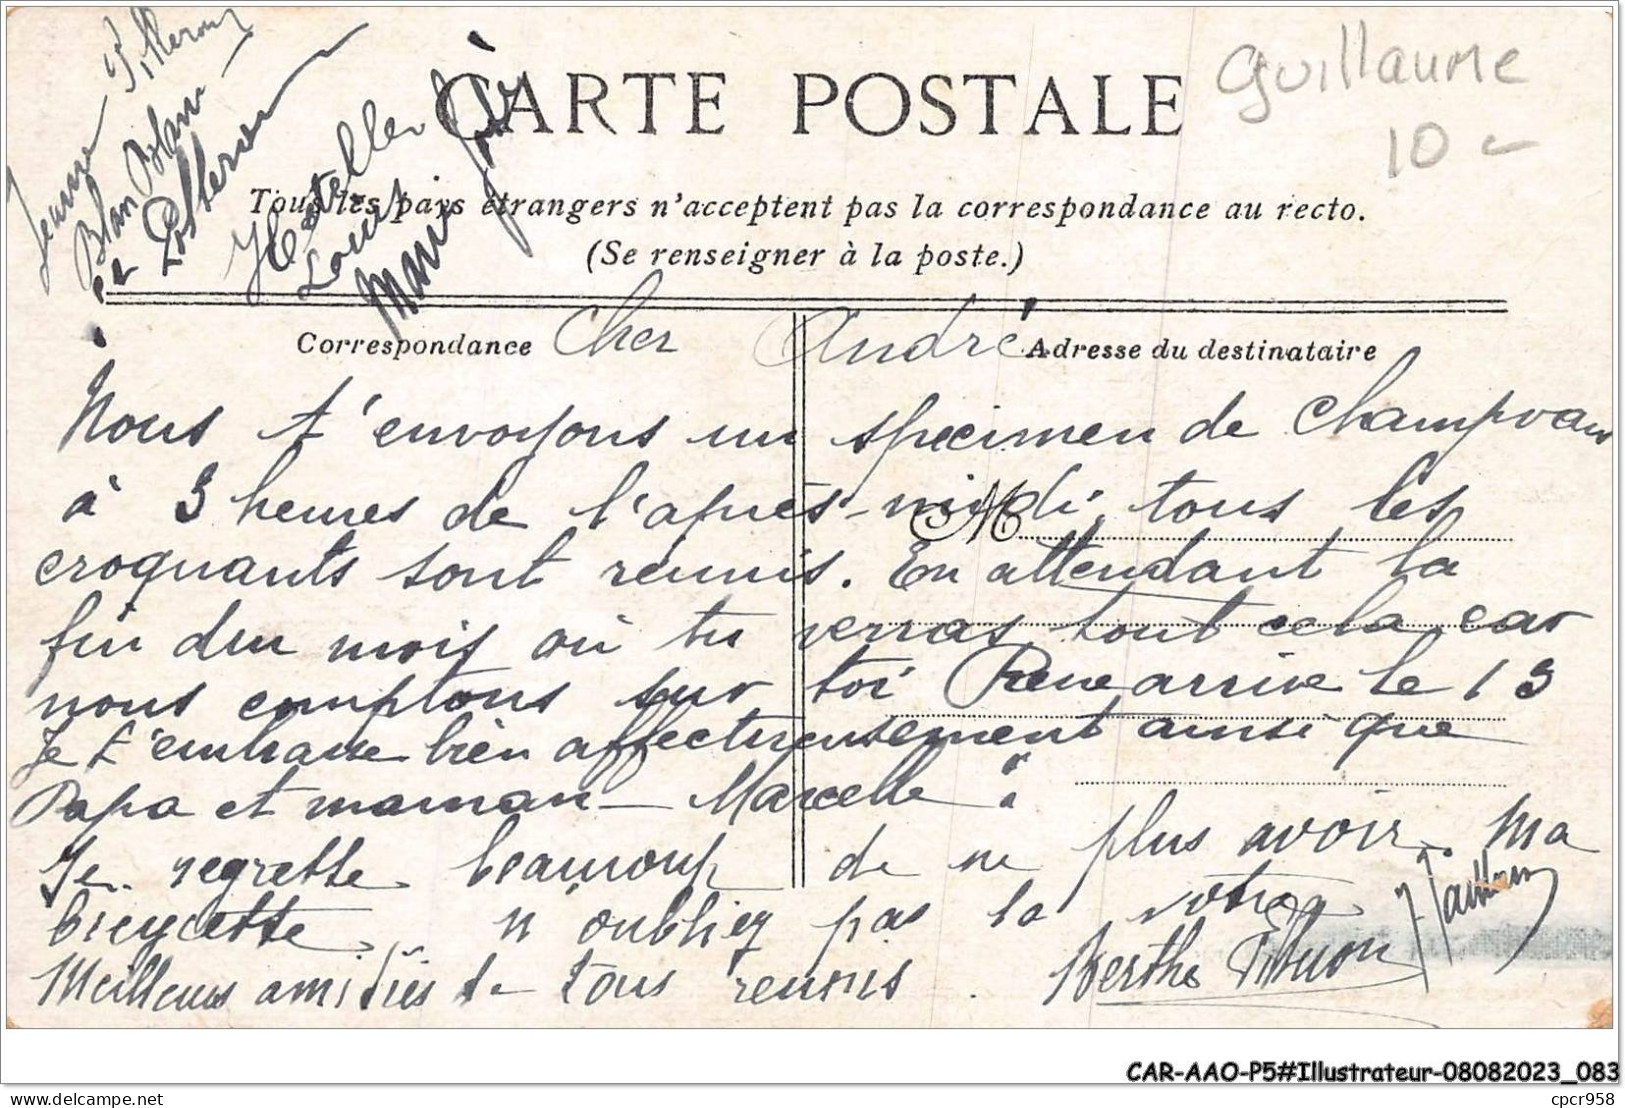 CARTE POSTALE
Guillaume
10 -
Jeanne
Blan Blan
et
Louis
Tous les pays étrangers n'acceptent pas la correspondance au recto.
(Se renseigner à la poste.)
Correspondance
Cher André
Adresse du destinataire
Nous t'envoyons un spécimen de Champvans
à 3 heures de l'après-midi, tous les
M
croquants sont réunis. En attendant la
fin du mois où tu verras tout cela car
nous comptons sur toi René arrive le 13
Je t'embrasse bien affectueusement ainsi que
Papa et maman - Marcelle
Je regrette beaucoup de ne plus avoir Ma
bicyclette n'oubliez pas la votre
Meilleurs amitiés de tous réunis. Berthe
CAR-AAO-P5#Illustrateur-08082023_083
delcampe.net
cpcr958